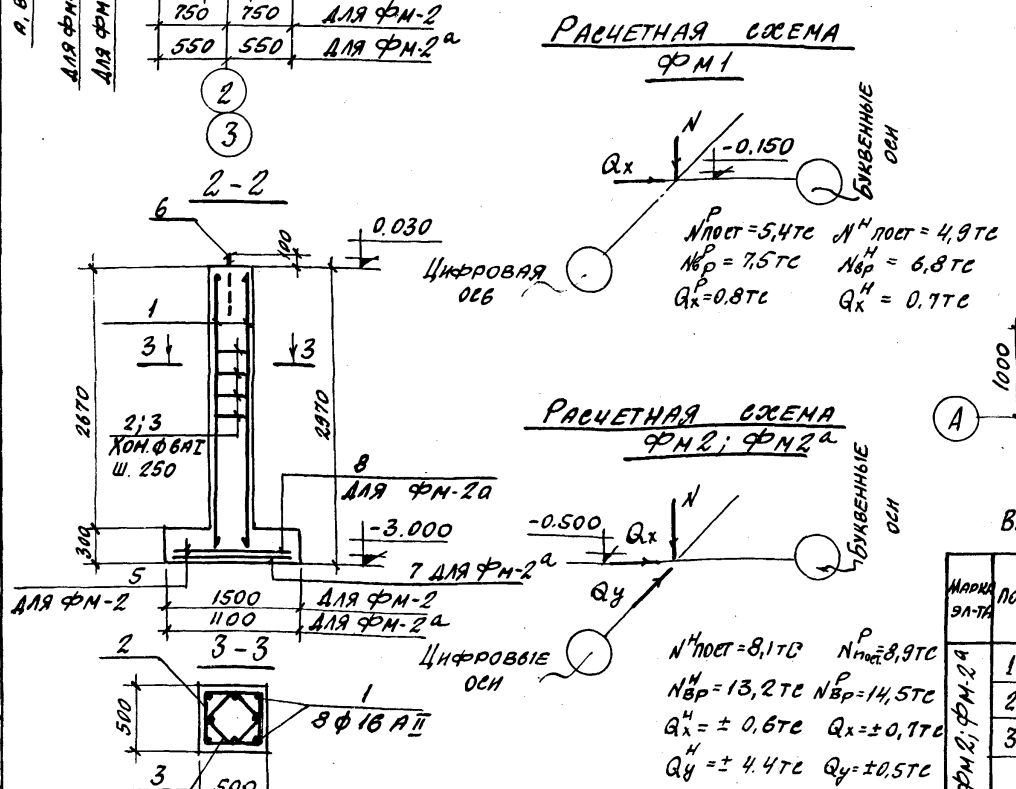 А, В
ДЛЯ ФМ
ДЛЯ ФМ
750 750 ДЛЯ ФМ-2
550 550 ДЛЯ ФМ-2ª
2
3
2-2
6
100
0.030
1
3 3
2670
2970
2;3
ХОМ. Ф6АI
Ш. 250
8
ДЛЯ ФМ-2а
300
-3.000
5
ДЛЯ ФМ-2
7 ДЛЯ ФМ-2ª
1500 ДЛЯ ФМ-2
1100 ДЛЯ ФМ-2ª
3-3
2
500
1
8 ф 16 А II
3
500
РАСЧЕТНАЯ СХЕМА
ФМ1
N
-0.150
Qх
БУКВЕННЫЕ
ОСИ
ЦИФРОВАЯ
ОСЬ
Nᴾпост = 5,4тс Nᴴпост = 4,9тс
Nᴾвр = 7,5тс Nᴴвр = 6,8тс
Qᴾх = 0.8тс Qᴴх = 0.7тс
1000
А
РАСЧЕТНАЯ СХЕМА
ФМ2; ФМ2ª
N
-0.500
Qх
Qу
БУКВЕННЫЕ
ОСИ
ЦИФРОВЫЕ
ОСИ
Nᴴпост = 8,1тс Nᴾпост. = 8,9тс
Nᴴвр = 13,2тс Nᴾвр = 14,5тс
Qᴴх = ± 0,6тс Qх = ± 0,7тс
Qᴴу = ± 4.4тс Qу = ± 0,5тс
В
МАРКА
ЭЛ-ТА
ПО
ФМ2; ФМ-2ª
1
2
3